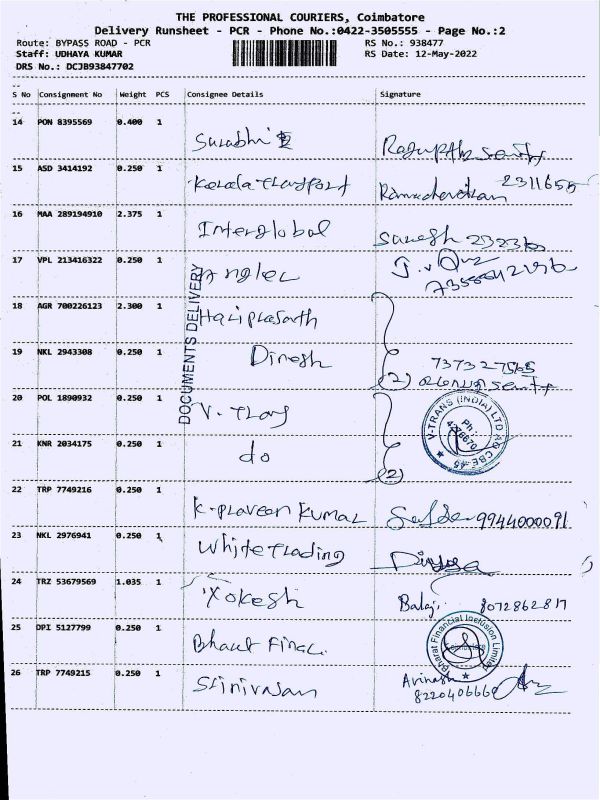 THE PROFESSIONAL COURIERS, Coimbatore
Delivery Runsheet - PCR - Phone No.:0422-3505555 - Page No.:2
Route: BYPASS ROAD - PCR RS No.: 938477
Staff: UDHAYA KUMAR RS Date: 12-May-2022
DRS No.: DCJB93847702
S No Consignment No Weight PCS Consignee Details Signature
14 PON 8395569 0.400 1
Surabhi
15 ASD 3414192 0.250 1
Kerala Transport Ramachandran 2311655
16 MAA 289194910 2.375 1
Interglobal Suresh
17 VPL 213416322 0.250 1
Angler
18 AGR 700226123 2.300 1
Hariprasath
19 NKL 2943308 0.250 1
Dinesh (2)
20 POL 1890932 0.250 1
V-Trans
21 KNR 2034175 0.250 1
do (2)
22 TRP 7749216 0.250 1
K-Praveen Kumar 9944000091
23 NKL 2976941 0.250 1
White Trading
24 TRZ 53679569 1.035 1
Yokesh Balaji 8072862817
25 DPI 5127799 0.250 1
Bharat Financ.
26 TRP 7749215 0.250 1
Srinivasan Avinash
8220406660
DOCUMENTS DELIVERY
V-TRANS (INDIA) LTD
Ph:
4276670
CBE-45
Bharat Financial Inclusion Limited
Coimbatore